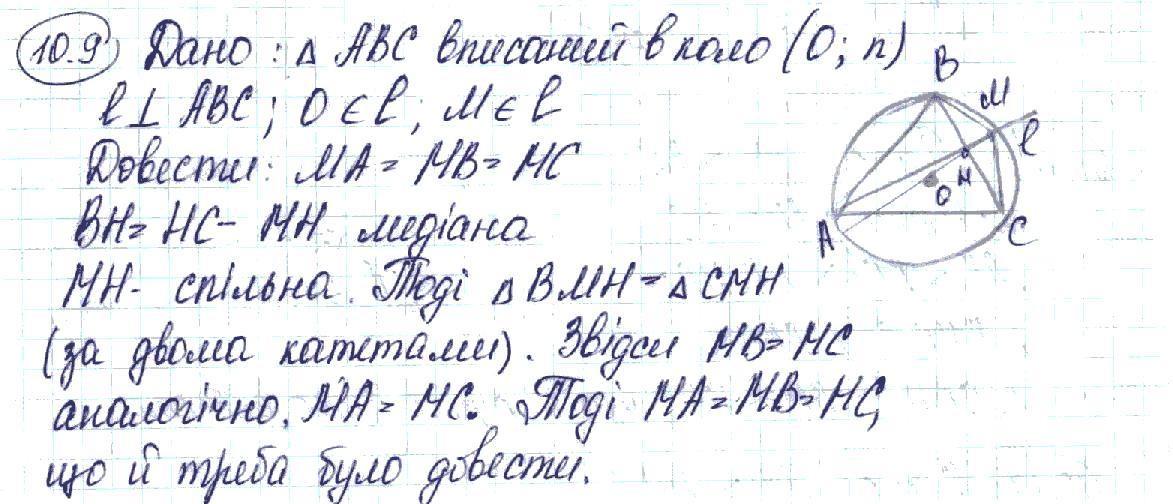 10.9 Дано: △ ABC вписаний в коло (O; r)
l ⊥ ABC; O ∈ l; M ∈ l
Довести: MA = MB = MC
BH = HC - MH медіана
MH - спільна. Тоді △ BMH = △ CMH
(за двома катетами). Звідси MB = MC
аналогічно. MA = MC. Тоді MA = MB = MC,
що й треба було довести.
B
M
l
H
O
A
C